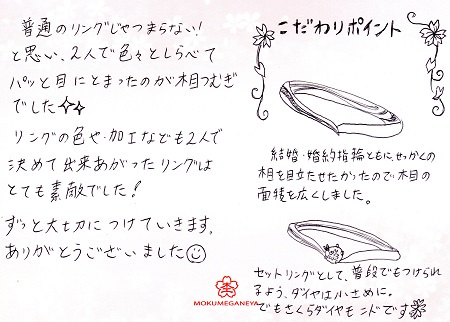 普通のリングじゃつまらない!
と思い、2人で色々としらべて
パッと目にとまったのが木目つむぎ
でした✧✧
リングの色や加工なども2人で
決めて出来あがったリングは
とても素敵でした!
ずっと大切につけていきます。
ありがとうございました☺
こだわりポイント
結婚・婚約指輪ともに、せっかくの
木目を目立たせたかったので木目の
面積を広くしました。
セットリングとして、普段でもつけられ
るよう、ダイヤは小さめに。
でもさくらダイヤも
です
MOKUMEGANEYA